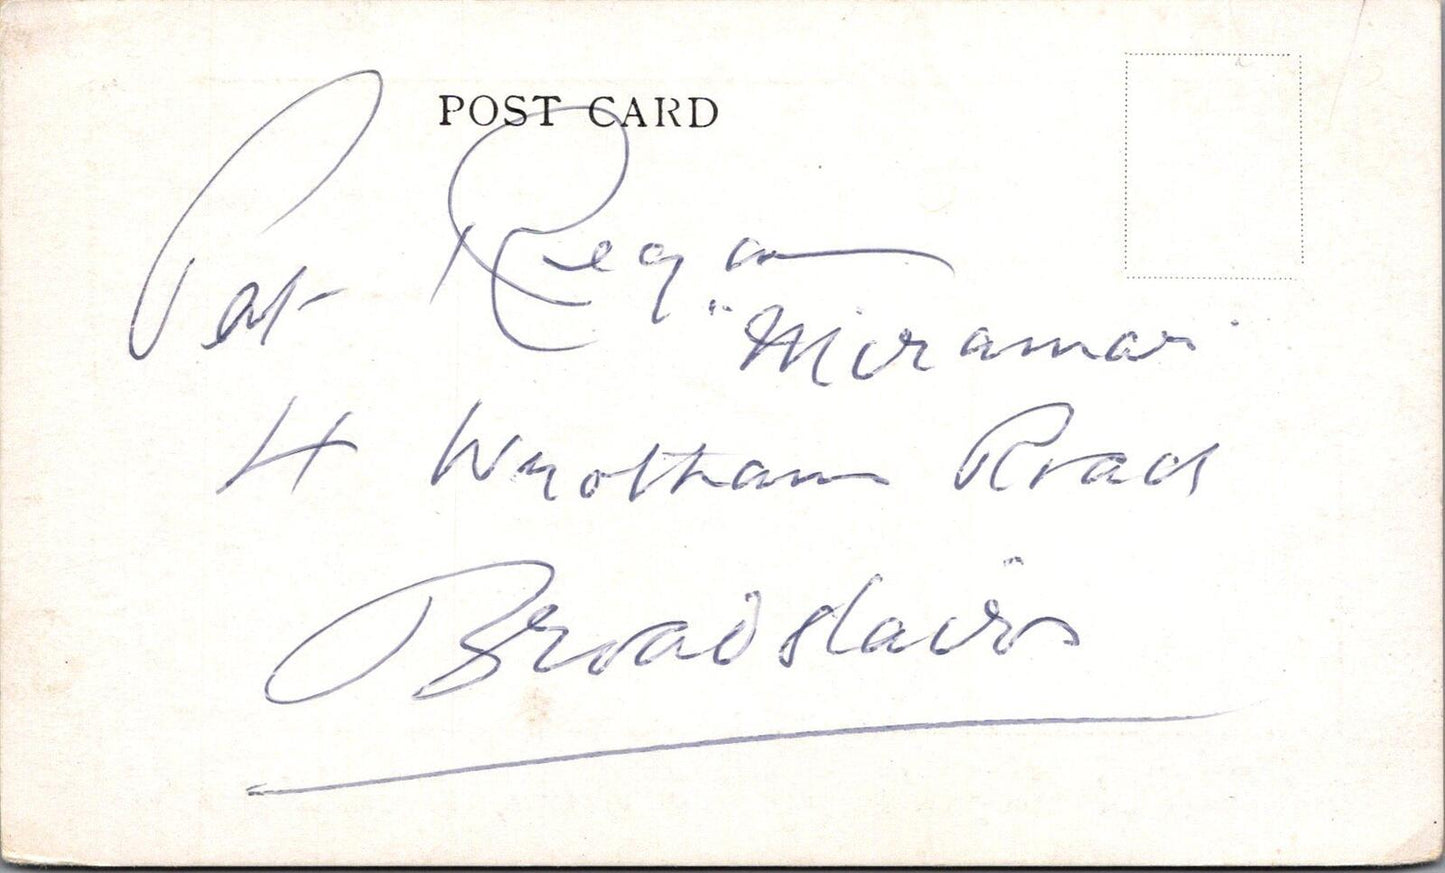 POST CARD
Pat Regan
"Miramar"
4 Wrotham Road
Broadstairs